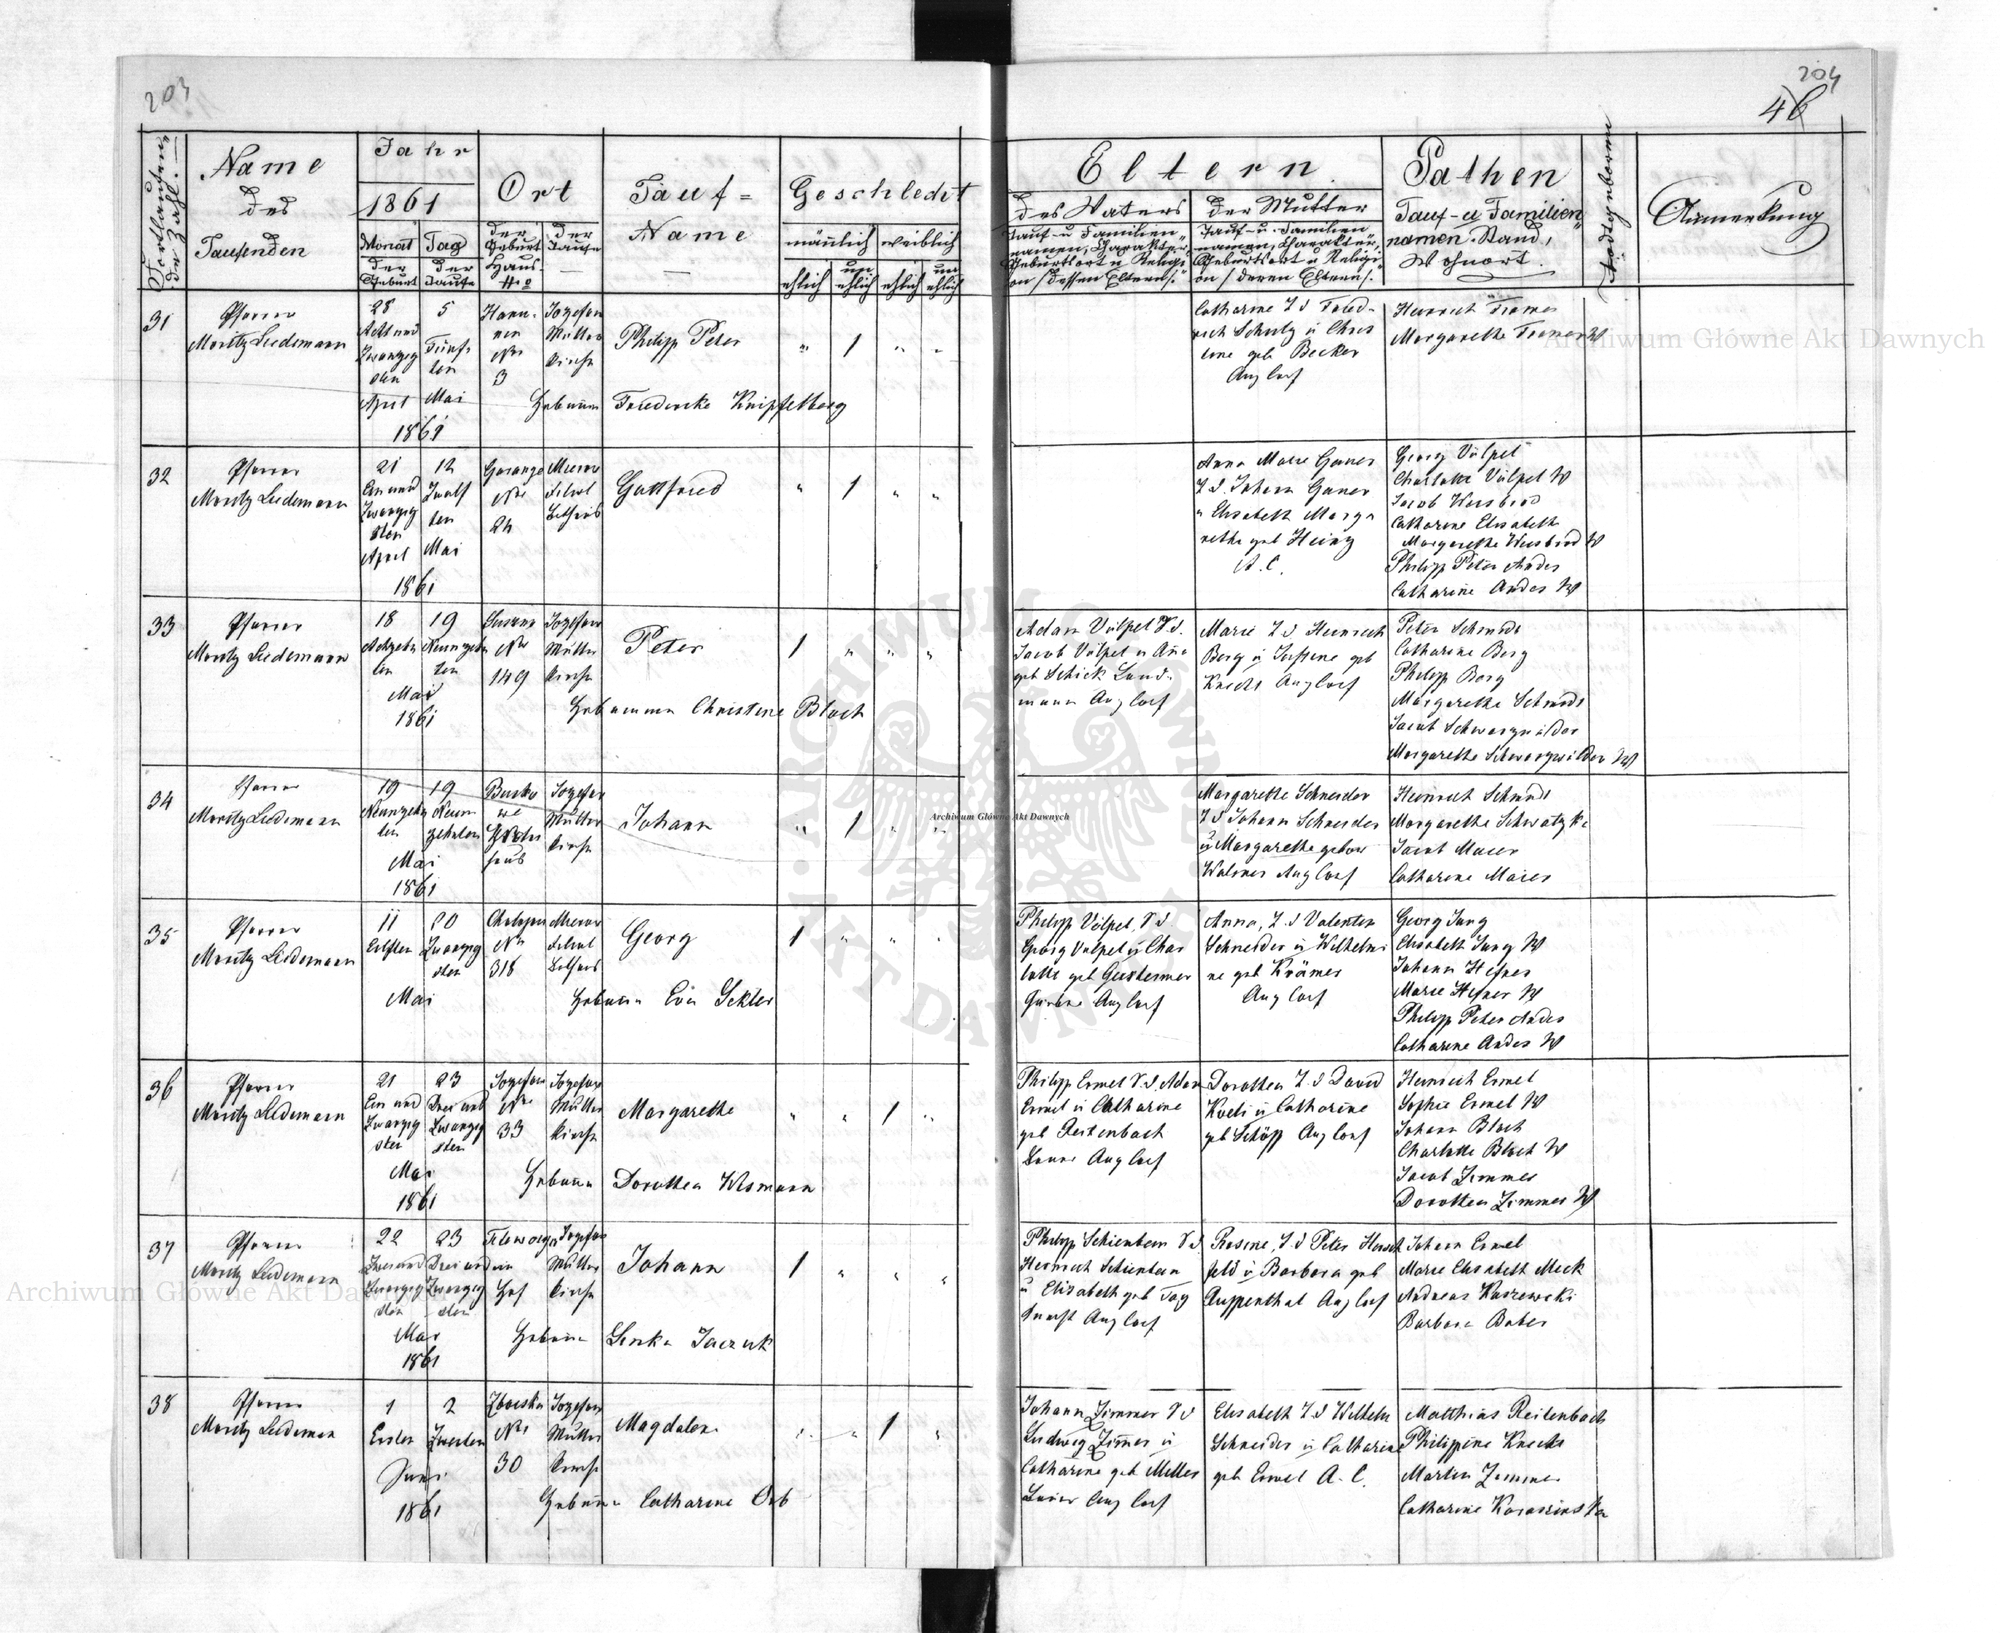 203
204
46
Fortlaufende Zahl.
Name
des
Taufenden
Jahr
1861
Monat
der
Geburt
Tag
der
Taufe
Ort
der
Geburt
Haus-
No
der
Taufe
Tauf-
Name
Geschlecht
männlich
weiblich
ehlich
unehlich
ehlich
unehlich
Eltern.
des Vaters
Tauf- u Familien-
namen, Charakter,
Geburtsort u Religi-
on /dessen Eltern/.
der Mutter
Tauf- u. Familien
namen, Charakter,
Geburtsort u Religi-
on /deren Eltern/.
Pathen
Tauf- u Familien
namen. Stand,
Wohnort.
Todtgeboren
Anmerkung
31
Pfarrer
Moritz Ludemann
28
Acht und
Zwanzig
sten
April
5
Fünf-
ten
Mai
1861
Nro
3
Jozefow
Mutter
kirche
Philipp Peter
1
Hebamme Friedericke Knipfelberg
Catharine T d Fried-
rich Schultz u Chris
tine geb Becker
Aug Conf
Heinrich
Margarethe
W
32
Pfarrer
Moritz Ludemann
21
Ein und
Zwanzig
sten
April
12
Zwölf
ten
Mai
1861
Nro
24
Gottfried
1
Anna Marie Ganer
T d. Johann Ganer
u Elisabeth Marga
rethe geb Heinz
A. C.
Georg Völpel
Charlotte Völpel W
Jacob Weisbrod
Catharine Elisabeth
Margarethe Weisbrod W
Philipp Peter Andes
Catharine Andes W
33
Pfarrer
Moritz Ludemann
18
Achtzehn
ten
19
Neunzehn
ten
Mai
1861
Nro
149
Jozefow
Mutter
kirche
Peter
1
Hebamme Christine Bloch
Adam Völpel S d.
Jacob Völpel u Ana
geb Schick Land-
mann Aug Conf
Marie T d Heinrich
Berg u Justine geb
Knecht Aug Conf
Peter Schmidt
Catharine Berg
Philipp Berg
Margarethe Schmidt
Jacob Schwarzwälder
Margarethe Schwarzwälder W
34
Pfarrer
Moritz Ludemann
19
Neunzehn
ten
19
Neun
zehnten
Mai
1861
Jozefow
Mutter
kirche
Johann
1
Margarethe Schneider
T d Johann Schneider
u Margarethe geborn
Aug Conf
Heinrich Schmidt
Margarethe Schwatzke
Jacob Maier
Catharine Maier
35
Pfarrer
Moritz Ludemann
11
Eilften
20
Zwanzig
sten
Mai
Nro
318
Georg
1
Hebamme Eva Sekler
Philipp Völpel, S d.
Georg Völpel u Char
lotte geb
Aug Conf
Anna, T. d Valentin
Schneider u Wilhelmi
ne geb Krämer
Aug Conf
Georg Jung
Elisabeth Jung W
Johann Hefner
Marie Hefner W
Philipp Peter Andes
Catharine Andes W
36
Pfarrer
Moritz Ludemann
21
Ein und
Zwanzig
sten
23
Drei und
Zwanzig
sten
Mai
1861
Jozefow
Nro
33
Jozefow
Mutter
kirche
Margarethe
1
Hebamme Dorothea Wismann
Philipp Ermel S. d Adam
Ermel u Catharine
geb Reitenbach
Bauer Aug Conf
Dorothea T d David
u Catharine
geb Schöpp Aug Conf
Heinrich Ermel
Sophie Ermel W
Johann Bloch
Charlotte Bloch W
Jacob Zimmer
Dorothea Zimmer W
37
Pfarrer
Moritz Ludemann
22
Zwei und
Zwanzig
sten
23
Drei und
Zwanzig
sten
Mai
1861
Hof
Jozefow
Mutter
kirche
Johann
1
Hebamme
Philipp Schienbein S d
Heinrich Schienbein
u Elisabeth geb
Aug Conf
Rosine, T. d Peter Hirsch
feld u Barbara geb
Ruppenthal Aug Conf
Johann Ermel
Marie Elisabeth Mock
Andreas
Barbara
38
Pfarrer
Moritz Ludeman
1
Ersten
2
Zweiten
Juni
1861
Zboiska
Nro
30
Jozefow
Mutter
kirche
Magdalena
1
Hebamme Catharine Orb
Johann Zimmer S d
Ludwig Zimmer u
Catharine geb Miller
Aug Conf
Elisabeth T. d Wilhelm
Schneider u Catharine
geb Ermel A. C.
Matthias Reitenbach
Philippine Knecht
Martin Zimmer
Catharine
Archiwum Główne Akt Dawnych
Archiwum Główne Akt Dawnych
Archiwum Główne Akt Dawnych